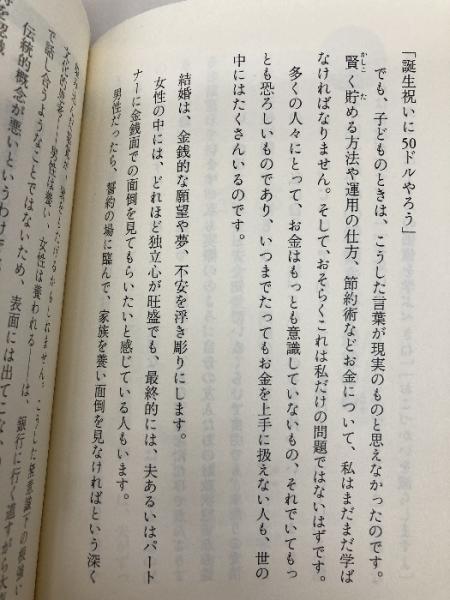 「誕生祝いに50ドルやろう」
でも、子どものときは、こうした言葉が現実のものと思えなかったのです。
賢く貯める方法や運用の仕方、節約術などお金について、私はまだまだ学ば
なければなりません。そして、おそらくこれは私だけの問題ではないはずです。
多くの人々にとって、お金はもっとも意識していないもの、それでいてもっ
とも恐ろしいものであり、いつまでたってもお金を上手に扱えない人も、世の
中にはたくさんいるのです。
結婚は、金銭的な願望や夢、不安を浮き彫りにします。
女性の中には、どれほど独立心が旺盛でも、最終的には、夫あるいはパート
ナーに金銭面での面倒を見てもらいたいと感じている人もいます。
男性だったら、誓約の場に臨んで、家族を養い面倒を見なければという深く
で話し合うようなことではないため、表面には出てこな
伝統的概念が悪いというわけ